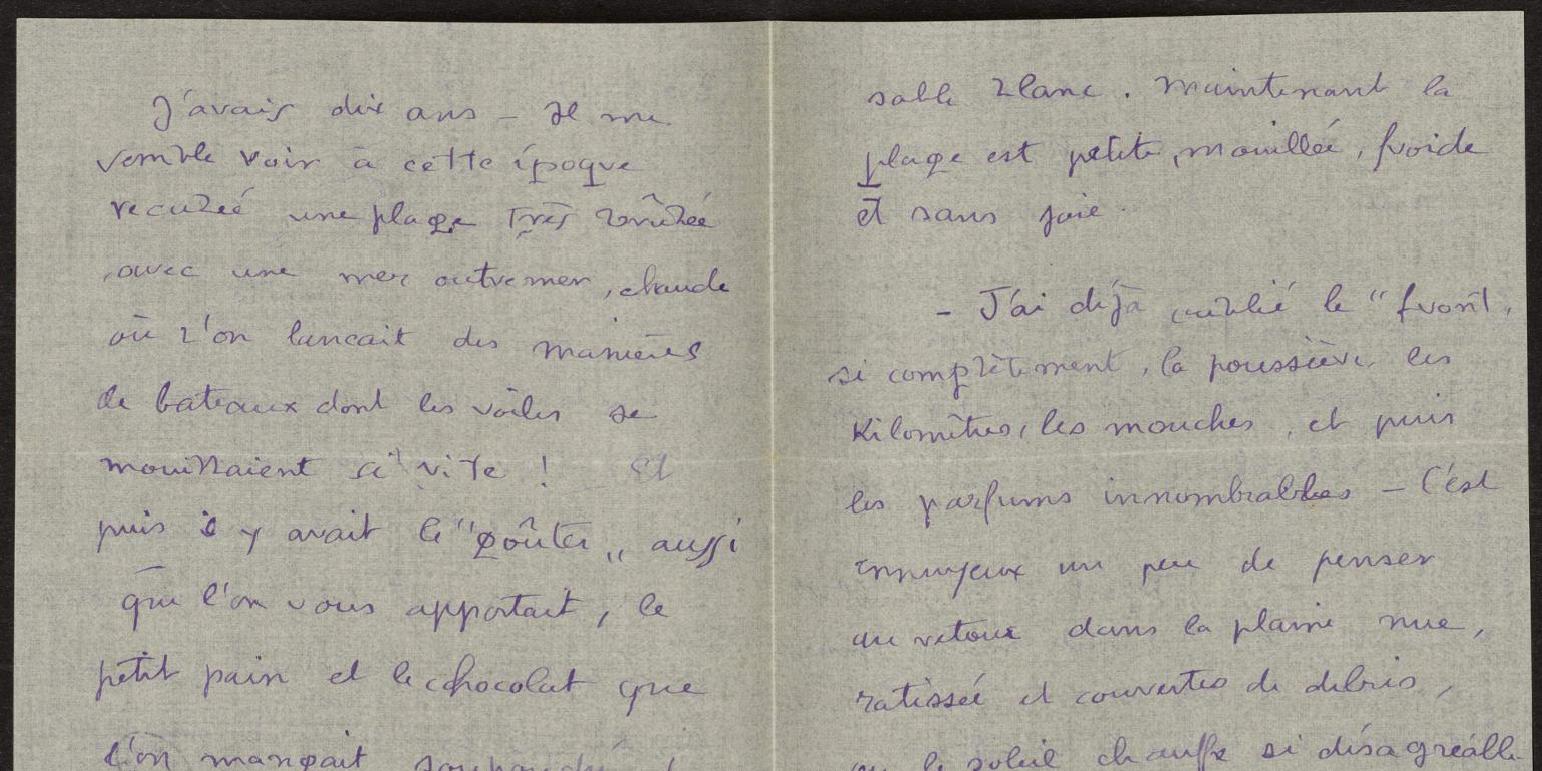 J'avais dix ans – Il me
semble voir à cette époque
reculée une plage très brûlée
, avec une mer outremer, chaude
où l'on lançait des manières
de bateaux dont les voiles se
mouillaient si vite ! Et
puis il y avait le "goûter" aussi
que l'on vous apportait, le
petit pain et le chocolat que
l'on mangeait
sable blanc. Maintenant la
plage est petite, mouillée, froide
et sans joie.
– J'ai déjà oublié le "front,
si complètement, la poussière, les
kilomètres, les mouches, et puis
les parfums innombrables – C'est
ennuyeux un peu de penser
au retour dans la plaine nue,
ratissée et couvertes de débris,
où le soleil chauffe si désagréable